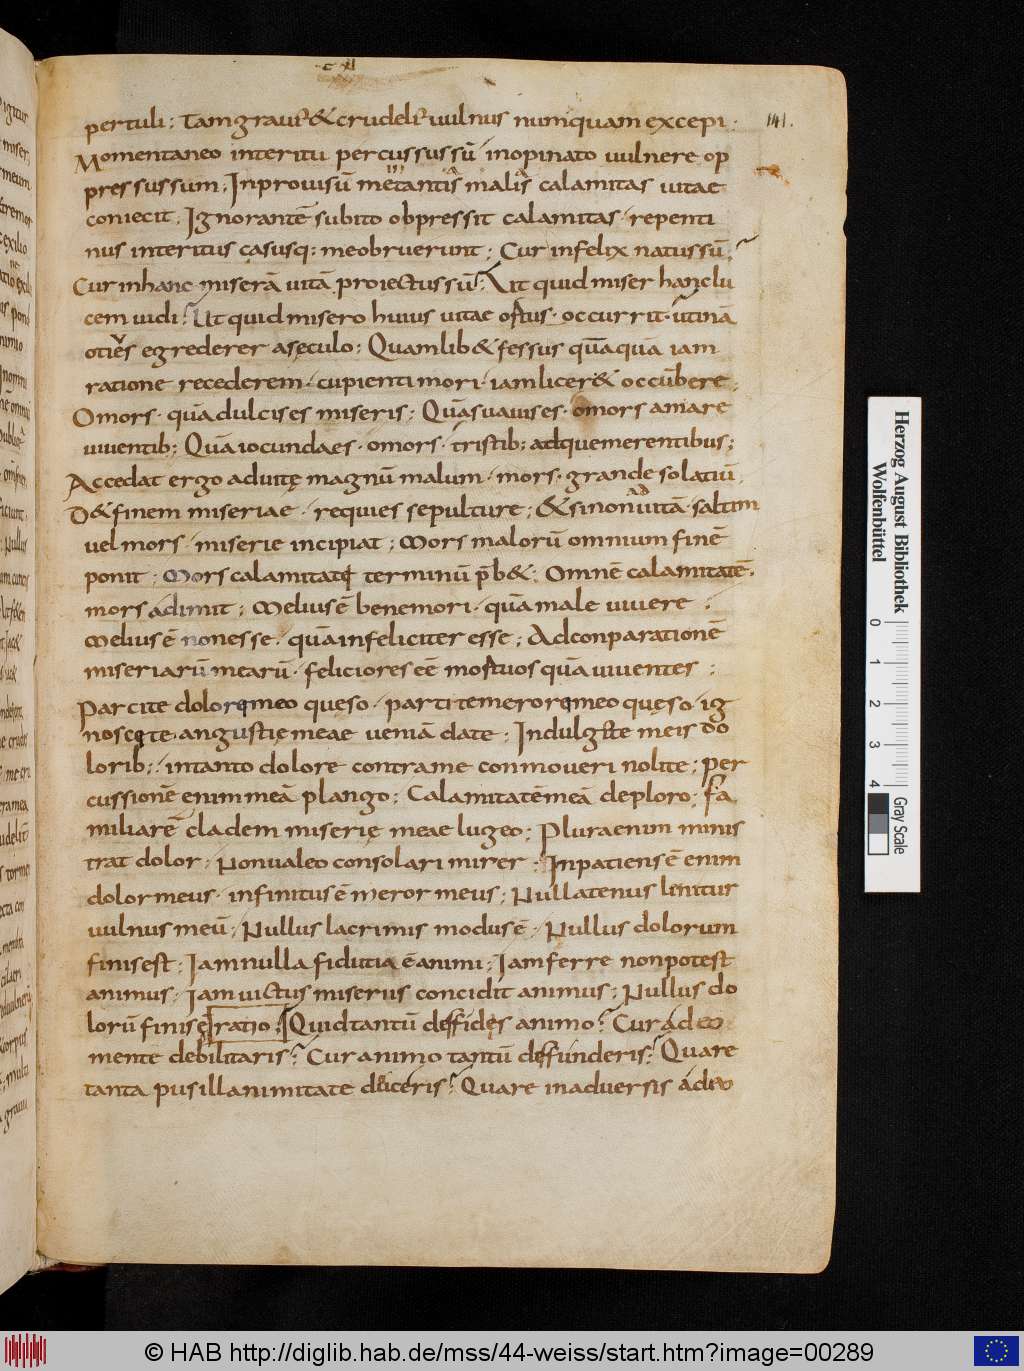 c xi
141.
pertuli; Tam graue & crudele uulnus numquam excepi.
Momentaneo interitu percussus sū inopinato uulnere op
pressus sum, Inprouisū me tantis malis calamitas uitae
coniecit. Ignorantē subito obpressit calamitas. repenti
nus interitus casusq: me obruerunt; Cur infelix natus sū?
Cur in hanc miserā uitā proiectus sū? Ut quid miser hanc lu
cem uidi? Ut quid misero huius uitae ortus. occurrit. utinā
egrederer a sęculo; Quamlib& fessus quāquā iam
ratione recederem. cupienti mori. iam licer& occūbere;
O mors. quā dulcis es miseris; Quā suauis es. o mors amare
uiuentib; Quā iocunda es. o mors. tristib; adque merentibus;
Accedat ergo ad uitę magnū malum. mors. grande solatiū,
D& finem miseriae. requies sepulture; & si non uitā. saltim
uel mors. miserie incipiat; Mors malorū omnium finē
ponit; Mors calamitatę terminū p̄b&; Omnē calamitatē.
mors adimit; Melius ē bene mori. quā male uiuere;
Melius ē non esse. quā infeliciter esse; Ad conparationē
miseriarū mearū. feliciores eē mortuos quā uiuentes;
Parcite dolore meo quęso. parti te merore meo quęso. ig
noscete. angustię meae ueniā date; Indulgete meis do
lorib;. in tanto dolore contra me conmoueri nolite; per
cussionē enim meā plango; Calamitatē meā deploro; fa
miliarē cladem miserię meae lugeo; Plura enim minis
trat dolor; Non ualeo consolari miser; Inpatiens ē enim
dolor meus. infinitus ē meror meus; Nullatenus linitur
uulnus meū; Nullus lacrimis modus ē; Nullus dolorum
finis est; Iam nulla fiducia ē animi; Iam ferre non potest
animus; Iam uictus miseriis concidit animus; Nullus do
lorū finis ē; ratio; Quid tantū deffides animo? Cur adeo
mente debilitaris? Cur animo tantū deffunderis? Quare
tanta pusillanimitate deiceris? Quare in aduersis adeo
Herzog August Bibliothek
Wolfenbüttel
0 1 2 3 4
Gray Scale
© HAB http://diglib.hab.de/mss/44-weiss/start.htm?image=00289